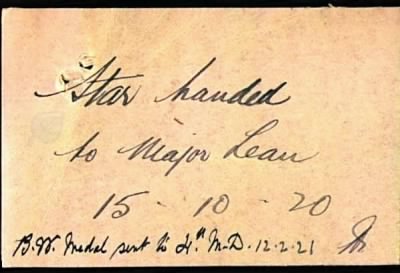 Star handed
to Major Lean
15 - 10 - 20
B.W. Medal sent to 4th M.D. 12.2.21